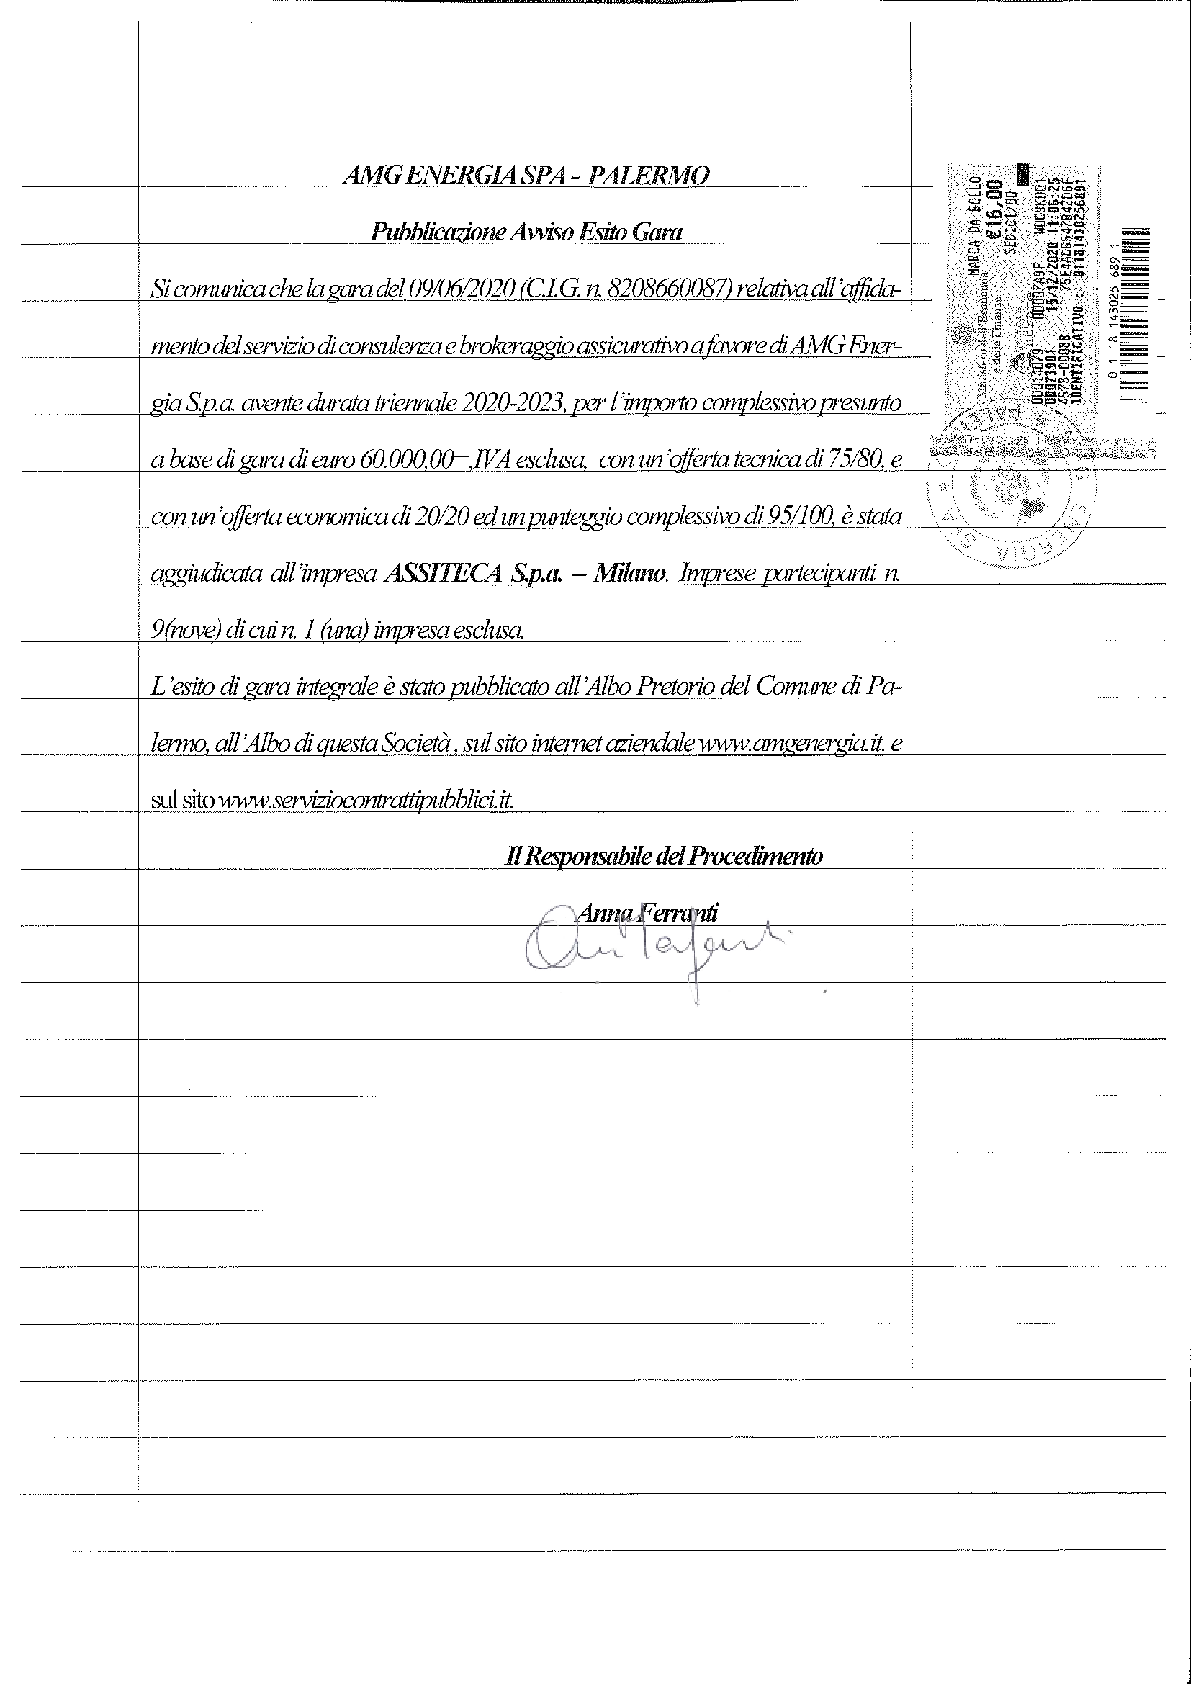 AMG ENERGIA SPA - PALERMO
Pubblicazione Avviso Esito Gara
Si comunica che la gara del 09/06/2020 (C.I.G. n. 8208660087) relativa all'affida-
mento del servizio di consulenza e brokeraggio assicurativo a favore di AMG Ener-
gia S.p.a. avente durata triennale 2020-2023, per l'importo complessivo presunto
a base di gara di euro 60.000,00—,IVA esclusa, con un'offerta tecnica di 75/80, e
con un'offerta economica di 20/20 ed un punteggio complessivo di 95/100, è stata
aggiudicata all'impresa ASSITECA S.p.a. – Milano. Imprese partecipanti n.
9(nove) di cui n. 1 (una) impresa esclusa.
L'esito di gara integrale è stato pubblicato all'Albo Pretorio del Comune di Pa-
lermo, all'Albo di questa Società, sul sito internet aziendale www.amgenergia.it. e
sul sito www.serviziocontrattipubblici.it.
Il Responsabile del Procedimento
Anna Ferranti
MARCA DA BOLLO
€16,00
SEDICI/00
15/12/2020 11:06:25
IDENTIFICATIVO : 01181430256891
0 1 8 143025 689 1
ENERGIA SPA